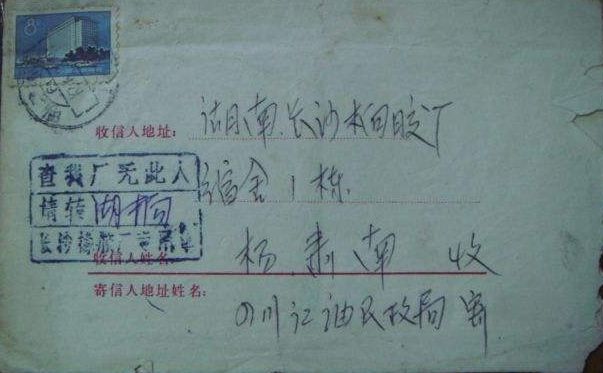 8
收信人地址: 湖南长沙橡胶厂
宿舍1栋
查我厂无此人
请转湖橡
长沙橡胶厂
收信人姓名: 杨肃南 收
寄信人地址姓名:
四川江油民政局寄